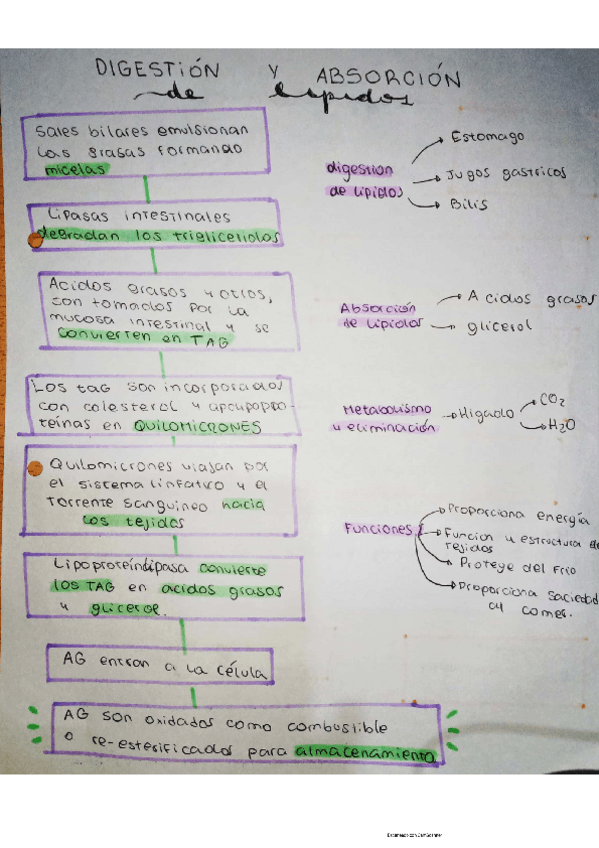 DIGESTIÓN Y ABSORCIÓN
de lípidos
Sales biliares emulsionan
las grasas formando
micelas
Lipasas intestinales
degradan los trigliceridos
Acidos grasos y otros,
son tomados por la
mucosa intestinal y se
convierten en TAG
Los tag son incorporados
con colesterol y
teínas en QUILOMICRONES
Quilomicrones viajan por
el sistema linfatico y el
torrente sanguineo hacia
los tejidos
Lipoproteíndipasa convierte
los TAG en acidos grasos
y glicerol.
AG entran a la célula
AG son oxidados como combustible
o re-esterificados para almacenamiento
digestion
de lipidos
Estomago
Jugos gastricos
Bilis
Absorción
de lipidos
Acidos grasos
glicerol
Metabolismo
y eliminación
Higado
CO2
H2O
Funciones
Proporciona energía
Funcion y estructura de
tejidos
Proteje del frio
Proporciona saciedad
al comer.